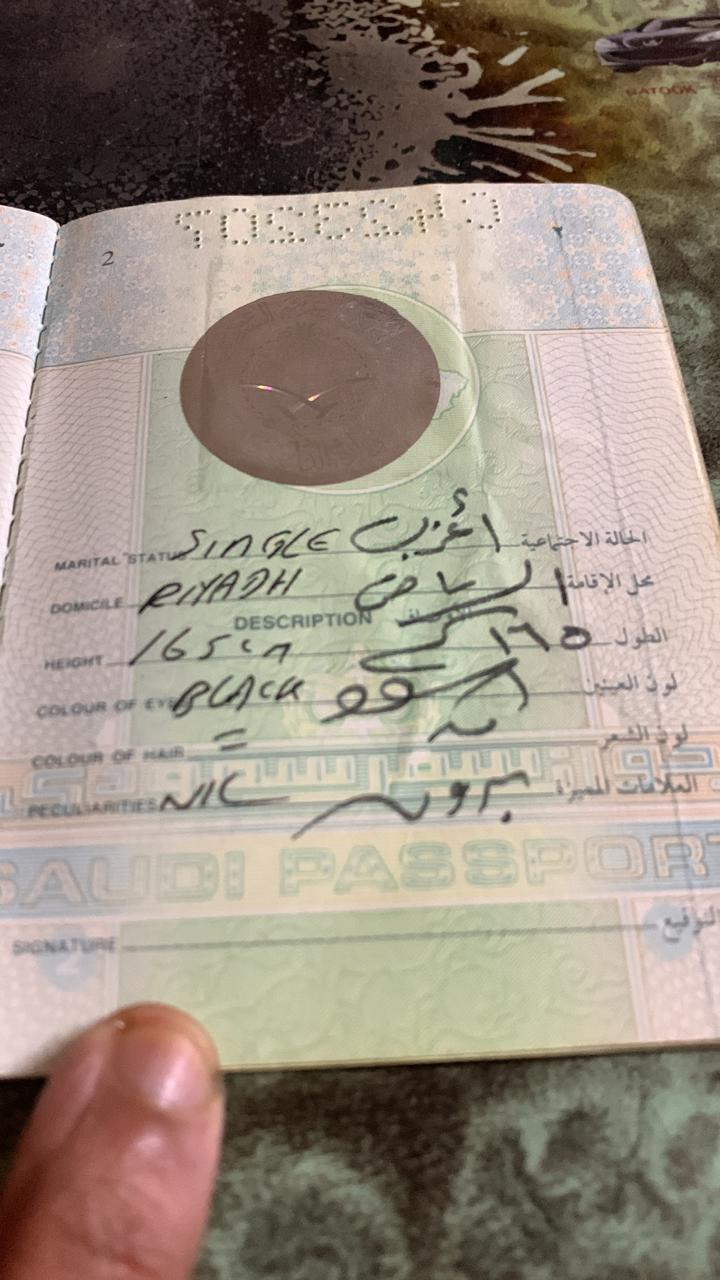 2 ٢
MARITAL STATUS SINGLE أعزب الحالة الاجتماعية
DOMICILE RIYADH الرياض محل الإقامة
DESCRIPTION الأوصاف
HEIGHT 165cm ١٦٥ الطول
COLOUR OF EYES BLACK أسود لون العينين
COLOUR OF HAIR = لون الشعر
PECULARITIES NIL بدون العلامات المميزة
SAUDI PASSPORT
SIGNATURE التوقيع